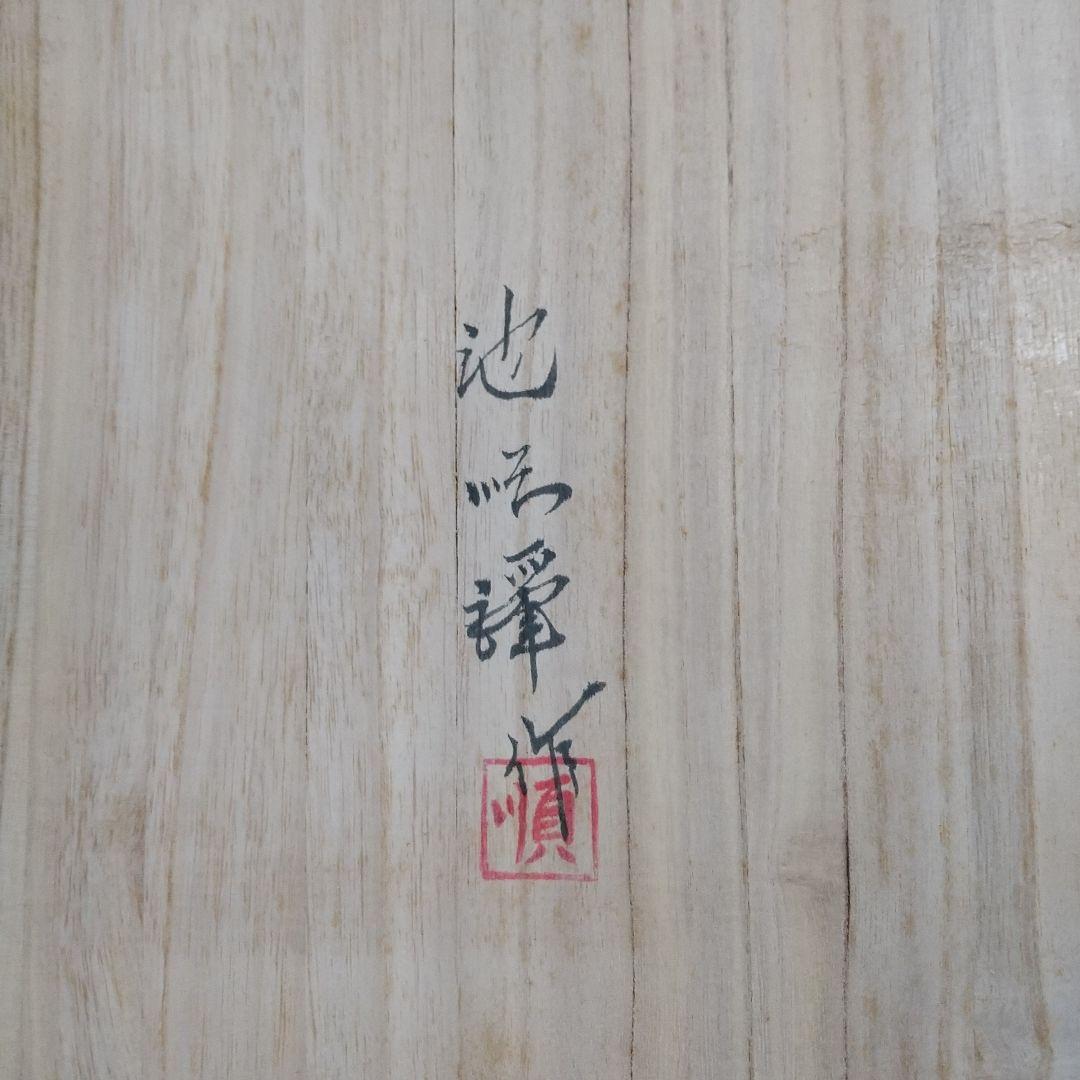 池順鐸作
順